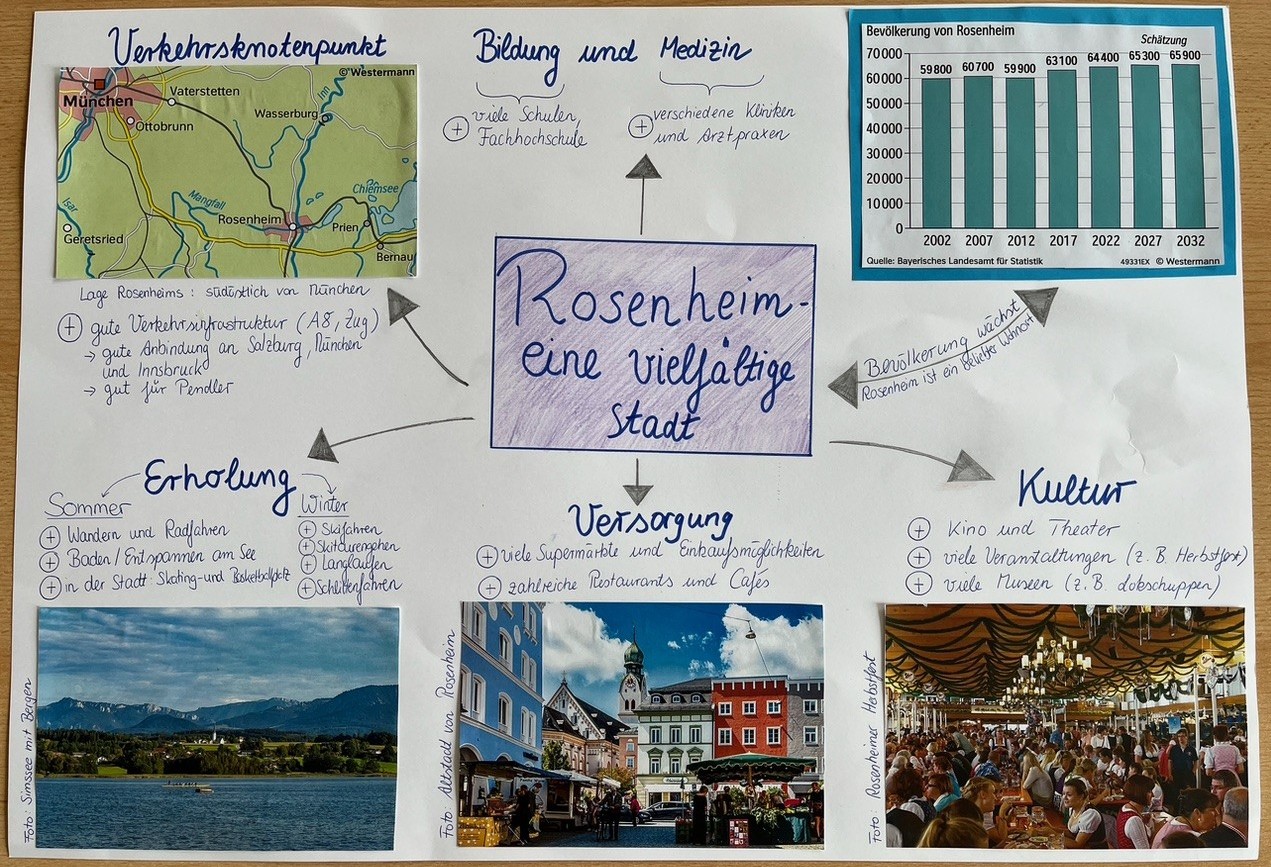 Verkehrsknotenpunkt
© Westermann
München
Vaterstetten
Ottobrunn
Wasserburg
Inn
Isar
Mangfall
Chiemsee
Rosenheim
Prien
Geretsried
Bernau
Lage Rosenheims: südöstlich von München
+ gute Verkehrsinfrastruktur (A8, Zug)
→ gute Anbindung an Salzburg, München
und Innsbruck
→ gut für Pendler
Bildung und Medizin
+ viele Schulen,
Fachhochschule
+ verschiedene Kliniken
und Arztpraxen
Bevölkerung von Rosenheim
Schätzung
70 000
60 000
50 000
40 000
30 000
20 000
10 000
0
59 800 60 700 59 900 63 100 64 400 65 300 65 900
2002 2007 2012 2017 2022 2027 2032
Quelle: Bayerisches Landesamt für Statistik 49331EX © Westermann
Rosenheim-
eine vielfältige
Stadt
Bevölkerung wächst
Rosenheim ist ein beliebter Wohnort
Erholung
Sommer
+ Wandern und Radfahren
+ Baden/Entspannen am See
+ in der Stadt: Skating- und Basketballplatz
Winter
+ Skifahren
+ Skitourengehen
+ Langlaufen
+ Schlittenfahren
Foto: Simssee mit Bergen
Versorgung
+ viele Supermärkte und Einkaufsmöglichkeiten
+ zahlreiche Restaurants und Cafés
Foto: Altstadt von Rosenheim
Kultur
+ Kino und Theater
+ viele Veranstaltungen (z. B. Herbstfest)
+ viele Museen (z. B. Lokschuppen)
Foto: Rosenheimer Herbstfest